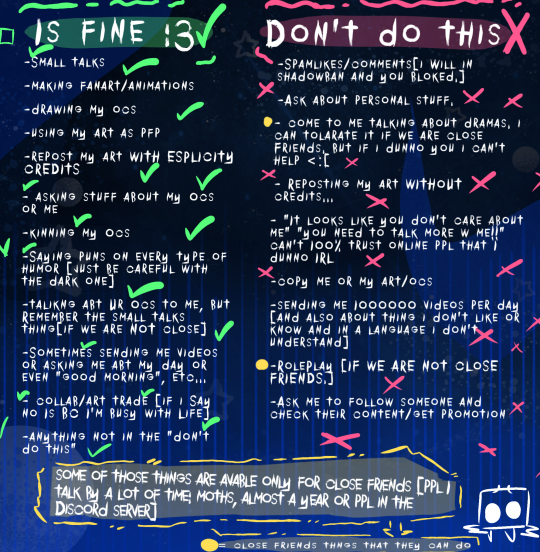 IS FINE :3
-SMALL TALKS
-MAKING FANART/ANIMATIONS
-DRAWING MY OCS
-USING MY ART AS PFP
-REPOST MY ART WITH ESPLICITY
CREDITS
- ASKING STUFF ABOUT MY OCS
OR ME
-KINNING MY OCS
-SAYING PUNS ON EVERY TYPE OF
HUMOR [JUST BE CAREFUL WITH
THE DARK ONE]
-TALIKNG ABT UR OCS TO ME, BUT
REMEMBER THE SMALL TALKS
THING[IF WE ARE NOT CLOSE]
-SOMETIMES SENDING ME VIDEOS
OR ASKING ME ABT MY DAY OR
EVEN "GOOD MORNING", ETC...
- COLLAB/ART TRADE [IF I SAY
NO IS BC I'M BUSY WITH LIFE]
-ANYTHING NOT IN THE "DON'T
DO THIS"
DON'T DO THIS
-SPAMLIKES/COMMENTS[I WILL IN
SHADOWBAN AND YOU BLOKED.]
-ASK ABOUT PERSONAL STUFF.
- COME TO ME TALKING ABOUT DRAMAS, I
CAN TOLARATE IT IF WE ARE CLOSE
FRIENDS, BUT IF I DUNNO YOU I CAN'T
HELP <:[
- REPOSTING MY ART WITHOUT
CREDITS...
- "IT LOOKS LIKE YOU DON'T CARE ABOUT
ME" "YOU NEED TO TALK MORE W ME!!"
CAN'T 100% TRUST ONLINE PPL THAT I
DUNNO IRL
-COPY ME OR MY ART/OCS
-SENDING ME 1000000 VIDEOS PER DAY
[AND ALSO ABOUT THING I DON'T LIKE OR
KNOW AND IN A LANGUAGE I DON'T
UNDERSTAND]
-ROLEPLAY [IF WE ARE NOT CLOSE
FRIENDS.]
-ASK ME TO FOLLOW SOMEONE AND
CHECK THEIR CONTENT/GET PROMOTION
SOME OF THOSE THINGS ARE AVABLE ONLY FOR CLOSE FRIENDS [PPL I
TALK BY A LOT OF TIME; MOTHS, ALMOST A YEAR OR PPL IN THE
DISCORD SERVER]
= CLOSE FRIENDS THNGS THAT THEY CAN DO